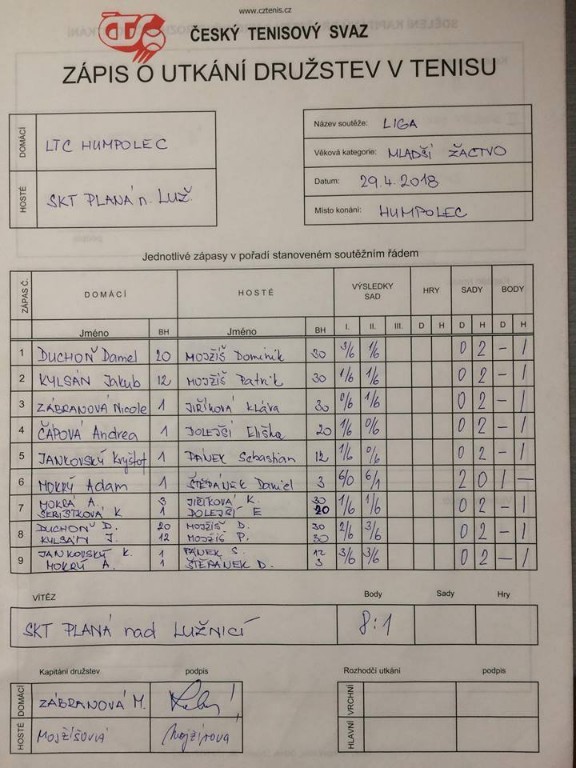 www.cztenis.cz
ČTS
ČESKÝ TENISOVÝ SVAZ
ZÁPIS O UTKÁNÍ DRUŽSTEV V TENISU
DOMÁCÍ LTC HUMPOLEC
HOSTÉ SKT PLANÁ n. LUŽ.
Název soutěže: LIGA
Věková kategorie: MLADŠÍ ŽACTVO
Datum: 29.4.2018
Místo konání: HUMPOLEC
Jednotlivé zápasy v pořadí stanoveném soutěžním řádem
ZÁPAS Č. DOMÁCÍ HOSTÉ VÝSLEDKY SAD HRY SADY BODY
Jméno BH Jméno BH I. II. III. D H D H D H
1 DUCHOŇ Daniel 20 MOJŽÍŠ Dominik 30 3/6 1/6 0 2 - 1
2 KYLSÁN Jakub 12 MOJŽÍŠ Patrik 30 1/6 1/6 0 2 - 1
3 ZÁBRANOVÁ Nicole 1 JIŘÍKOVÁ Klára 30 0/6 1/6 0 2 - 1
4 ČÁPOVÁ Andrea 1 DOLEJŠÍ Eliška 20 1/6 0/6 0 2 - 1
5 JANKOVSKÝ Kryštof 1 PÁNEK Sebastian 12 1/6 0/6 0 2 - 1
6 MOKRÝ Adam 1 ŠTĚPÁNEK Daniel 3 6/0 6/1 2 0 1 -
7 MOKRÁ A. 3 JIŘÍKOVÁ K. 30 1/6 1/6 0 2 - 1
K 1 DOLEJŠÍ E 20
8 DUCHOŇ D. 20 MOJŽÍŠ D. 30 2/6 3/6 0 2 - 1
KYLSÁN J. 12 MOJŽÍŠ P. 30
9 JANKOVSKÝ K. 1 PÁNEK S. 12 3/6 3/6 0 2 - 1
MOKRÝ A. 1 ŠTĚPÁNEK D. 3
VÍTĚZ Body Sady Hry
SKT PLANÁ nad LUŽNICÍ 8:1
Kapitáni družstev podpis Rozhodčí utkání podpis
DOMÁCÍ ZÁBRANOVÁ M. VRCHNÍ
HOSTÉ MOJŽÍŠOVÁ Mojžíšová HLAVNÍ